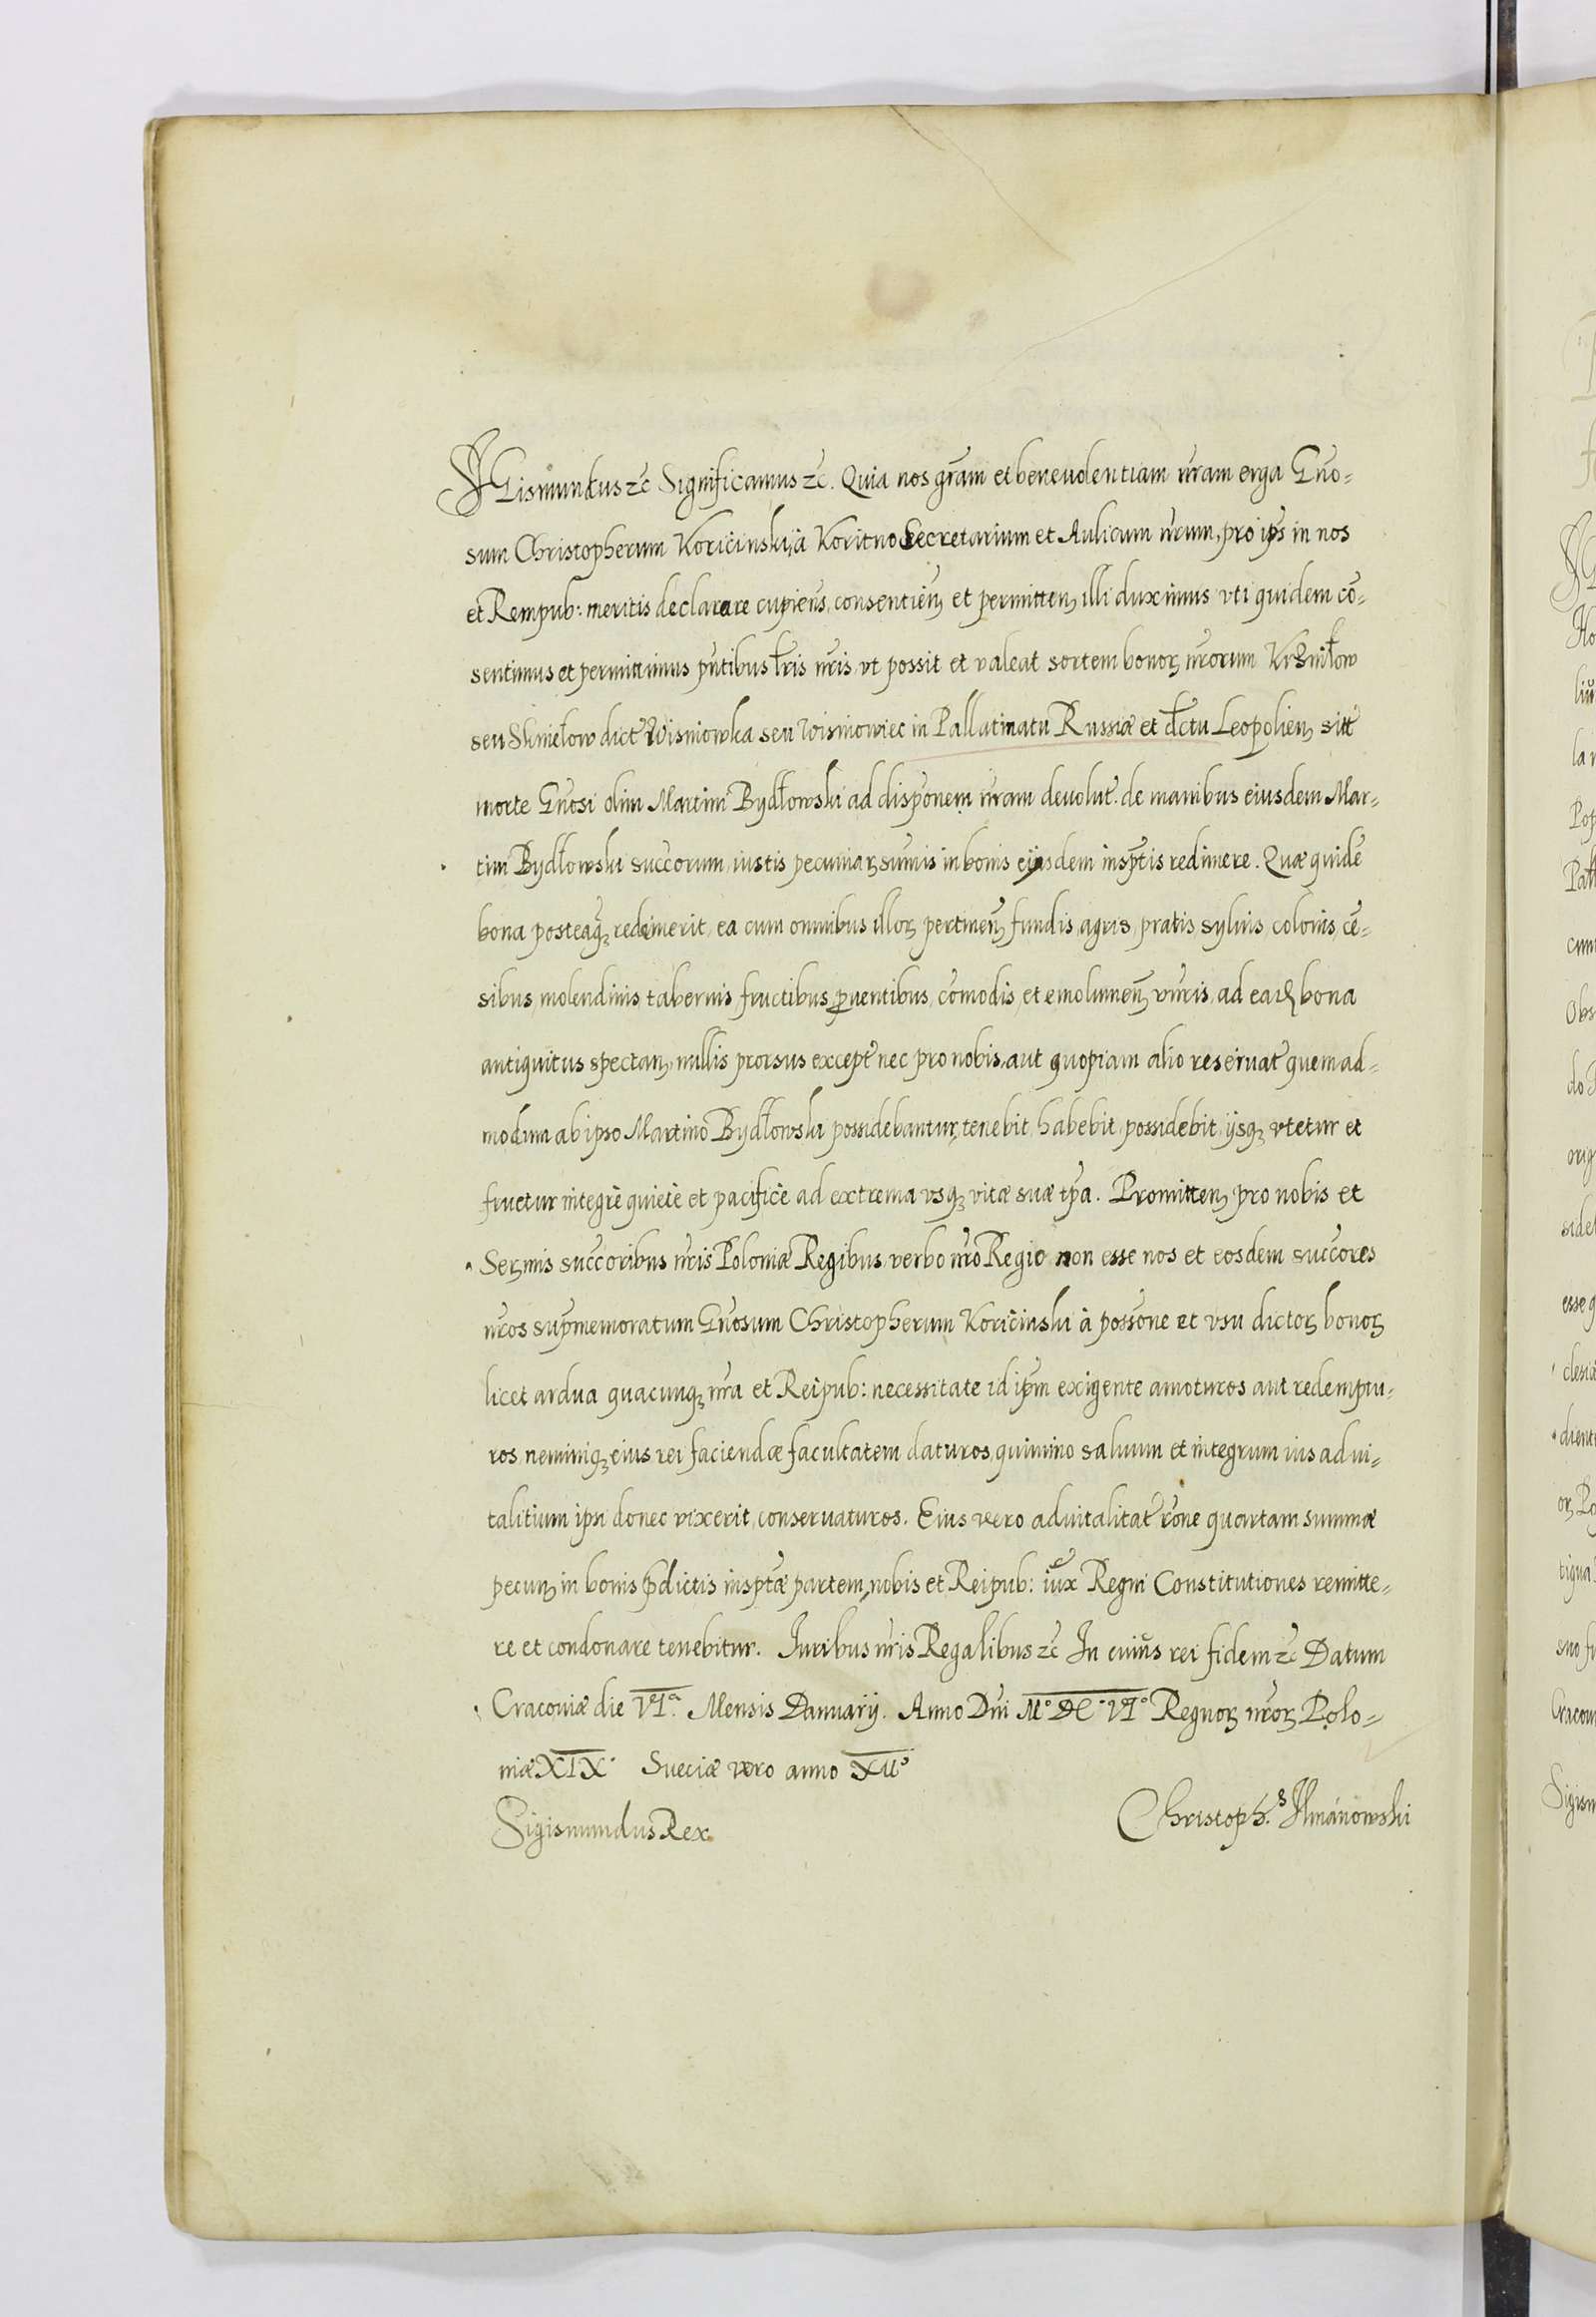 SIGismundus &c̃ Significamus &c̃. Quia nos grãm et beneuolentiam nr̃am erga Gño-
sum Christopherum Koricinski à Koritno Secretarium et Aulicum nr̃um, pro ip̃s in nos
et Rempub: meritis declarare cupieñs, consentień et permitteń illi duximus vti quidem cõ-
sentimus et permittimus pñtibus łris nr̃is, vt possit et valeat sortem bonoꝝ nr̃orum
seu Skniełow dict̃ Wisniowka seu Wisniowiec in Pallatinatu Russiæ et dc̃tu Leopolieñ sitt̃
morte Gñosi olim Martini Bydłowski ad disp̃onem nr̃am deuolut̃. de manibus eiusdem Mar-
tini Bydłowski succ̃orum, iustis pecuniaꝝ sum̃is in bonis eiusdem insp̃tis redimere. Quæ quidẽ
bona posteaqꝫ redemerit, ea cum omnibus illoꝝ pertineñ fundis, agris, pratis, syluis, colonis, cẽ-
sibus, molendinis, tabernis, fructibus, ꝓuentibus, com̃odis, et emolumeñ vñris, ad ea bona
antiquitus spectań, nullis prorsus except̃ nec pro nobis, aut quopiam alio reseruat̃ quemad-
modum ab ipso Martino Bydłowski possidebantur, tenebit, habebit, possidebit, ijsqꝫ vtetur et
fruetur integrè quietè et pacificè ad extrema vsqꝫ vitæ suæ tp̃a. Promitteń pro nobis et
Serꝫmis succ̃oribus nr̃is Poloniæ Regibus, verbo nr̃o Regio non esse nos et eosdem succ̃ores
nr̃os supr̃memoratum Gñosum Christopherum Koricinski à poss̃one et vsu dictoꝝ bonoꝝ
licet ardua quacunqꝫ nr̃a et Reipub: necessitate id ip̃m exigente amoturos aut redemptu-
ros, neminiqꝫ eius rei faciendæ facultatem daturos, quinimo saluum et integrum ius aduì-
talitium ipsi donec vixerit, conseruaturos. Eius vero aduitalitat̃ rõne quartam summæ
pecunꝫ in bonis p̃dictis insp̃tæ partem, nobis et Reipub: iux̃ Regni Constitutiones remitte-
re et condonare tenebitur. Iuribus nr̃is Regalibus &c̃ In cuius rei fidem &c̃ Datum
Cracouiæ die VIa. Mensis Januarij. Anno Dñi Mo DC VIo Regnoꝝ nr̃oꝝ Polo-
niæ XIX Sueciæ vero anno XIIo
Sigismundus Rex
Christoph.s Ilmánowski